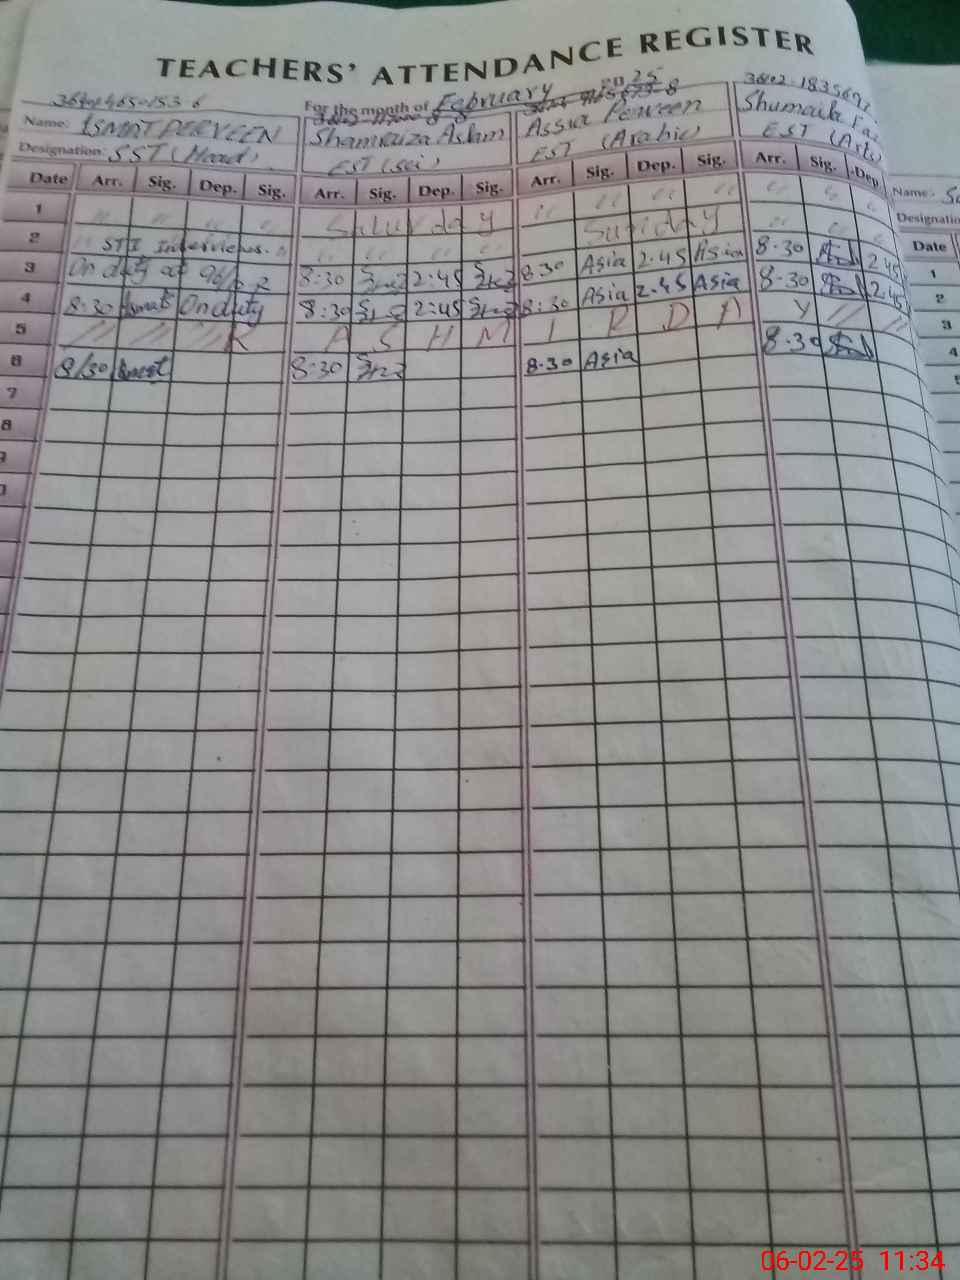 TEACHERS' ATTENDANCE REGISTER
For the month of February 25
Name: ISMAT PERVEEN Shamruiza Aslam Assia Perveen Shumaila
Designation: SST (Head) EST (Sci) EST (Arabic) EST (Arts)
Date Arr. Sig. Dep. Sig. Arr. Sig. Dep. Sig. Arr. Sig. Dep. Sig. Arr. Sig. Dep.
1 " " " " Saturday " " " " " " "
2 " STI Interviews. " " " " " Sunday " " "
3 On duty at 8:30 2:45 8:30 Asia 2.45 Asia 8.30 2.45
4 8:30 Ismat On duty 8:30 2:45 8:30 Asia 2.45 Asia 8.30 2.45
5 K A S H M I R D A Y
6 8/30 Ismat 8:30 8.30 Asia 8.30
7
8
Name:
Designatio
Date
1
2
3
4
06-02-25 11:34